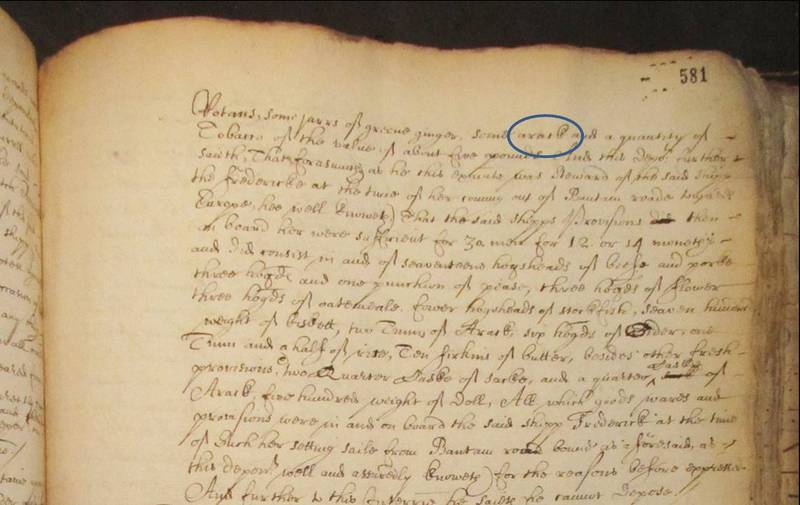 581
Rotans, some jarrs of greene ginger, some arack and a quantity of
Tobacco of the value of about five pounds. And this depot further
saieth, That forasmuch as he this deponte was Steward of the said shipp
the Fredericke at the time of her comming out of Bantam roade towards
Europe, hee well knoweth That the said shipps Provisions did then
on board her were sufficient for 30 men for 12 or 14 moneths
and did consist in and of seaventeene hogsheads of beefe and porke
three hogds and one punchion of pease, three hogds of flower
three hogds of oatemeale, fower hogsheads of stockfish, seaven hundred
weight of biskett, two Tunns of Arack, six hogds of Cider, one
Tunn and a half of rice, Ten firkins of butter, besides other fresh
provisions, two Quarter Caske of sacke, and a quarter caske of
Arack, five hundred weight of Doll, All which goods, wares and
provisions were in and on board the said shipp Frederick at the time
of such her setting saile from Bantam road bound as aforesaid, as
this deponent well and assuredly knoweth for the reasons before
And further to this Interrie he saieth he cannot depose.